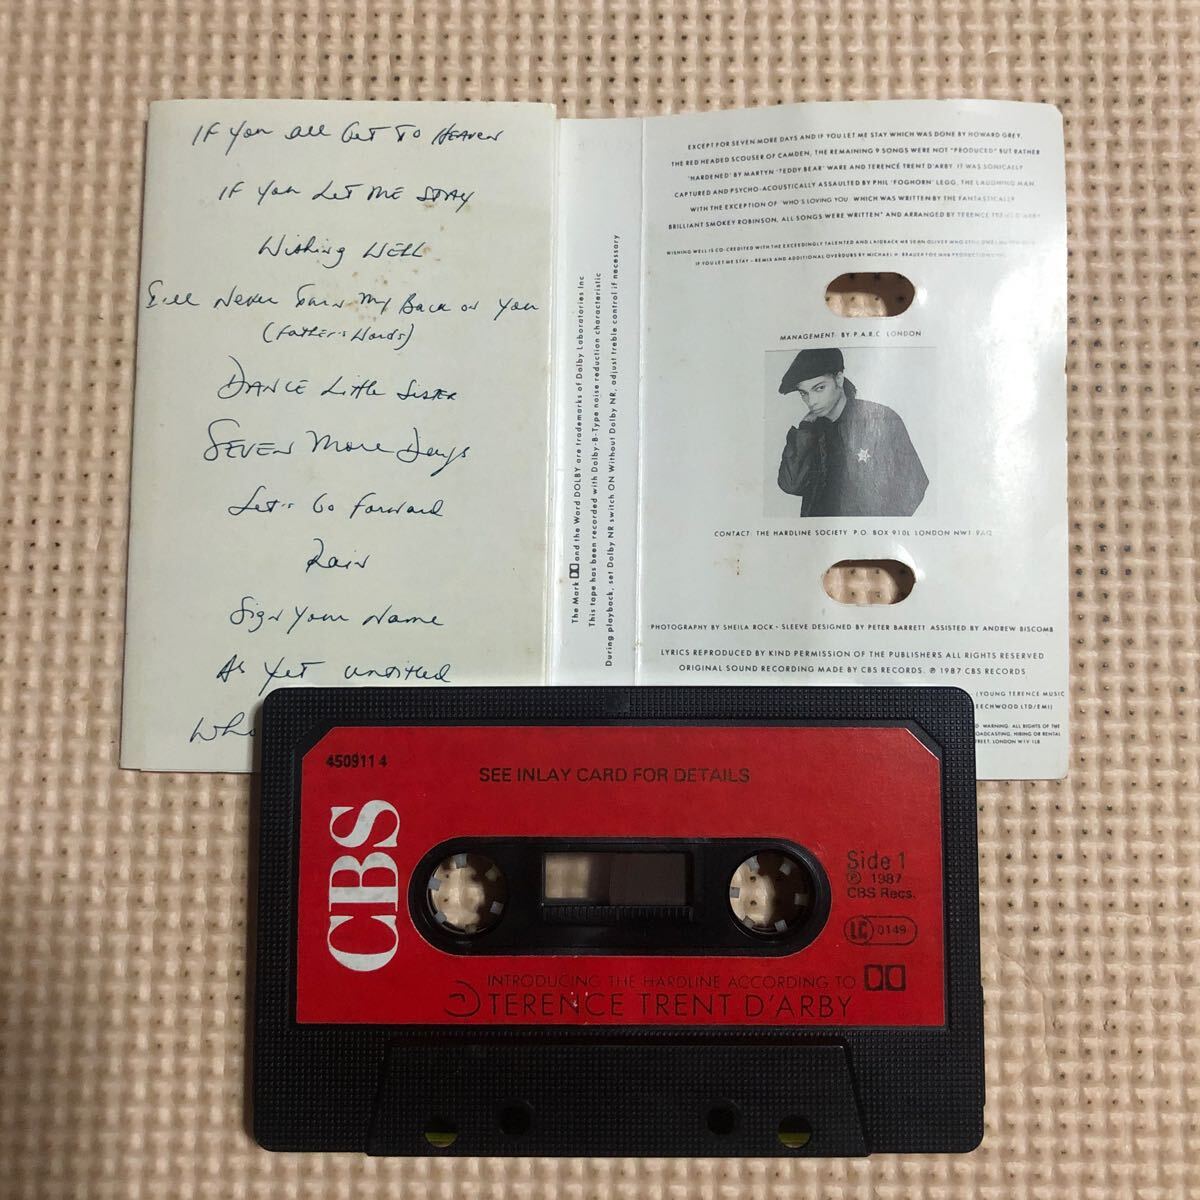 IF You all Get To Heaven
IF You Let Me Stay
Wishing Well
I'll Never Turn My Back on You
(Father's Words)
Dance Little Sister
Seven More Days
Let's Go Forward
Rain
Sign Your Name
As Yet untitled
Who
The Mark and the Word DOLBY are trademarks of Dolby Laboratories Inc
This tape has been recorded with Dolby-B-Type noise reduction characteristic
During playback, set Dolby NR switch ON Without Dolby NR, adjust treble control if necessary
EXCEPT FOR SEVEN MORE DAYS AND IF YOU LET ME STAY WHICH WAS DONE BY HOWARD GREY,
THE RED HEADED SCOUSER OF CAMDEN, THE REMAINING 9 SONGS WERE NOT "PRODUCED" BUT RATHER
'HARDENED' BY MARTYN 'TEDDY BEAR' WARE AND TERENCE TRENT D'ARBY. IT WAS SONICALLY
CAPTURED AND PSYCHO-ACOUSTICALLY ASSAULTED BY PHIL 'FOGHORN' LEGG, THE LAUGHING MAN.
WITH THE EXCEPTION OF 'WHO'S LOVING YOU', WHICH WAS WRITTEN BY THE FANTASTICALLY
BRILLIANT SMOKEY ROBINSON, ALL SONGS WERE WRITTEN* AND ARRANGED BY TERENCE TRENT D'ARBY
WISHING WELL IS CO-CREDITED WITH THE EXCEEDINGLY TALENTED AND LAIDBACK MR SEAN OLIVER WHO STILL OWES
IF YOU LET ME STAY – REMIX AND ADDITIONAL OVERDUBS BY MICHAEL H. BRAUER FOR MHB PRODUCTIONS INC.
MANAGEMENT: BY P.A.R.C. LONDON
CONTACT: THE HARDLINE SOCIETY P.O. BOX 910L LONDON NW1 9AQ
PHOTOGRAPHY BY SHEILA ROCK • SLEEVE DESIGNED BY PETER BARRETT ASSISTED BY ANDREW BISCOMB
LYRICS REPRODUCED BY KIND PERMISSION OF THE PUBLISHERS ALL RIGHTS RESERVED
ORIGINAL SOUND RECORDING MADE BY CBS RECORDS. ℗ 1987 CBS RECORDS
(YOUNG TERENCE MUSIC
EECHWOOD LTD/EMI)
D. WARNING: ALL RIGHTS OF THE
OADCASTING, HIRING OR RENTAL
TREET, LONDON W1V 1LB
450911 4
SEE INLAY CARD FOR DETAILS
CBS
Side 1
℗ 1987
CBS Recs.
LC 0149
INTRODUCING THE HARDLINE ACCORDING TO
TERENCE TRENT D'ARBY